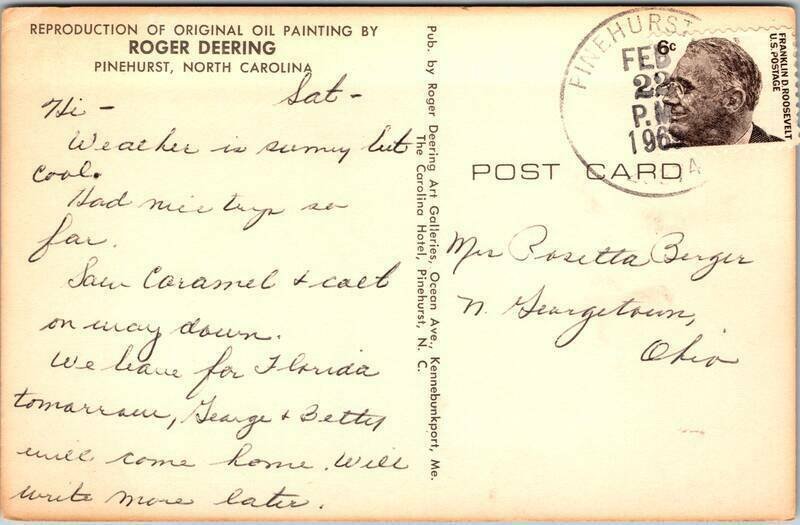 REPRODUCTION OF ORIGINAL OIL PAINTING BY
ROGER DEERING
PINEHURST, NORTH CAROLINA
Sat -
Hi -
Weather is sunny but
cool.
Had nice trip so
far.
Saw Caramel & colt
on way down.
We leave for Florida
tomorrow, George & Betty
will come home. Will
write more later.
Pub. by Roger Deering Art Galleries, Ocean Ave., Kennebunkport, Me.
The Carolina Hotel, Pinehurst, N. C.
PINEHURST
FEB
22
P.M
196
6c
FRANKLIN D. ROOSEVELT
U.S. POSTAGE
POST CARD
Mrs Rosetta Berger
N. Georgetown,
Ohio